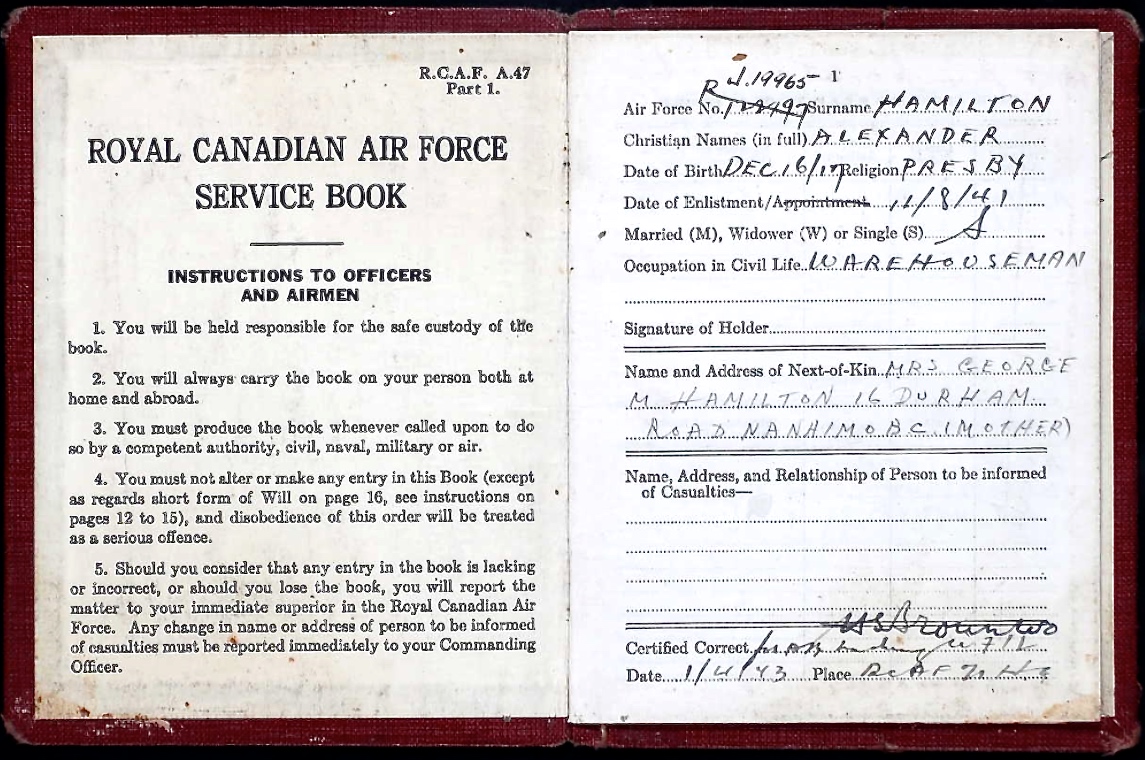 R.C.A.F. A.47
Part 1.
ROYAL CANADIAN AIR FORCE
SERVICE BOOK
INSTRUCTIONS TO OFFICERS
AND AIRMEN
1. You will be held responsible for the safe custody of the
book.
2. You will always carry the book on your person both at
home and abroad.
3. You must produce the book whenever called upon to do
so by a competent authority, civil, naval, military or air.
4. You must not alter or make any entry in this Book (except
as regards short form of Will on page 16, see instructions on
pages 12 to 15), and disobedience of this order will be treated
as a serious offence.
5. Should you consider that any entry in the book is lacking
or incorrect, or should you lose the book, you will report the
matter to your immediate superior in the Royal Canadian Air
Force. Any change in name or address of person to be informed
of casualties must be reported immediately to your Commanding
Officer.
1
J.19965
Air Force No. R Surname HAMILTON
Christian Names (in full) ALEXANDER
Date of Birth DEC 16/17 Religion PRESBY
Date of Enlistment/Appointment 11/8/41
Married (M), Widower (W) or Single (S) S
Occupation in Civil Life WAREHOUSEMAN
Signature of Holder
Name and Address of Next-of-Kin MRS GEORGE
M HAMILTON 16 DURHAM
ROAD NANAIMO BC (MOTHER)
Name, Address, and Relationship of Person to be informed
of Casualties—
Certified Correct
Date 1/4/43 Place RCAF